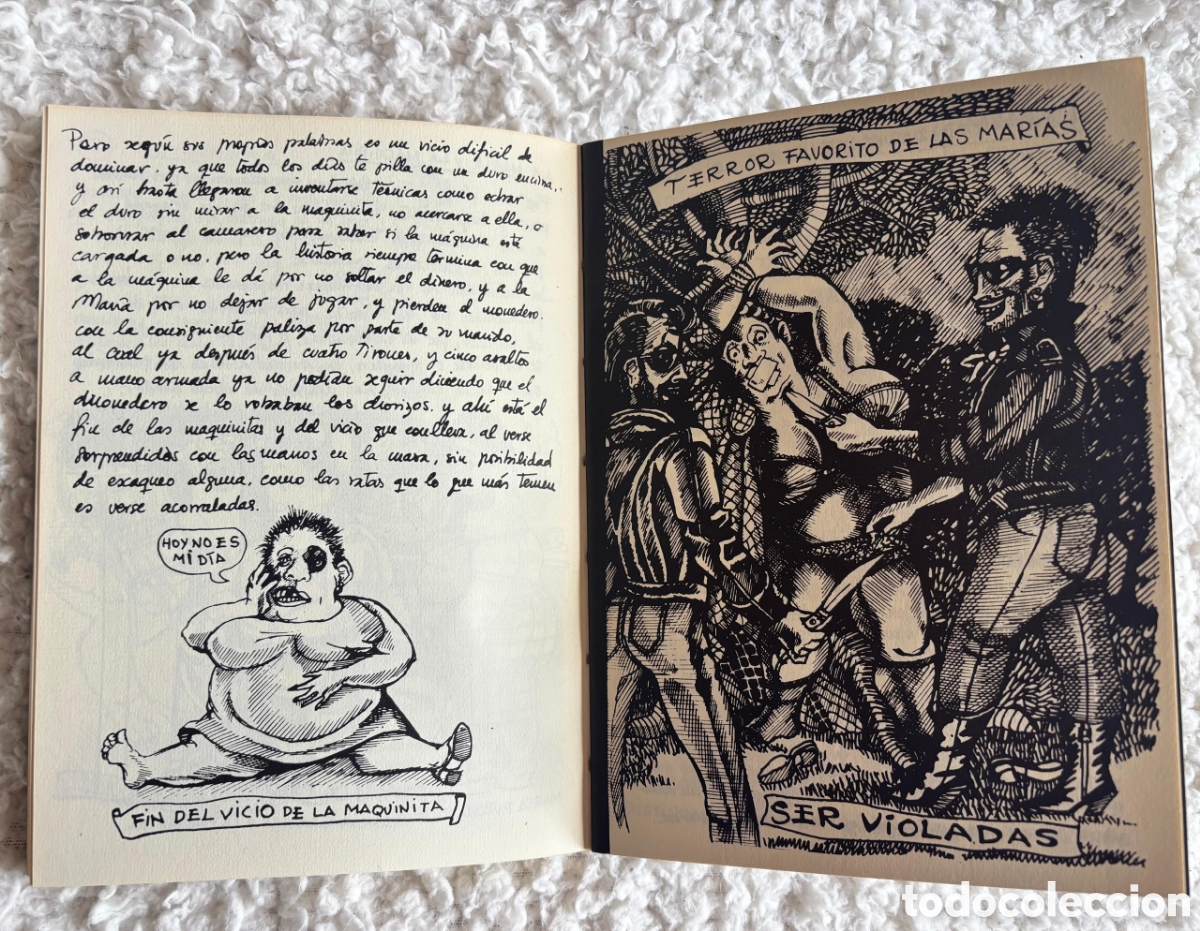 Pero según sus propias palabras es un vicio dificil de
dominar, ya que todos los días te pilla con un duro encima,
y así hasta llegaron a inventarse técnicas como echar
el duro sin mirar a la maquinita, no acercarse a ella, o
sobornar al camarero para saber si la máquina está
cargada o no, pero la historia siempre termina con que
a la máquina le dá por no soltar el dinero, y a la
María por no dejar de jugar, y pierden el monedero.
con la consiguiente paliza por parte de su marido,
al cual ya después de cuatro tirones, y cinco asaltos
a mano armada ya no podían seguir diciendo que el
monedero se lo robaban los chorizos. y ahí está el
fin de las maquinitas y del vicio que conlleva, al verse
sorprendidas con las manos en la masa, sin posibilidad
de escaqueo alguna, como las ratas que lo que más temen
es verse acorraladas.
HOY NO ES
MI DÍA
FIN DEL VICIO DE LA MAQUINITA
TERROR FAVORITO DE LAS MARÍAS
SER VIOLADAS
todocoleccion